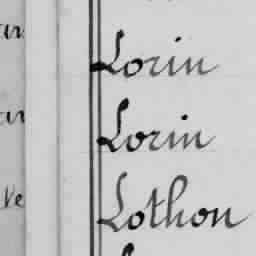 Lorin
Lorin
Lothon